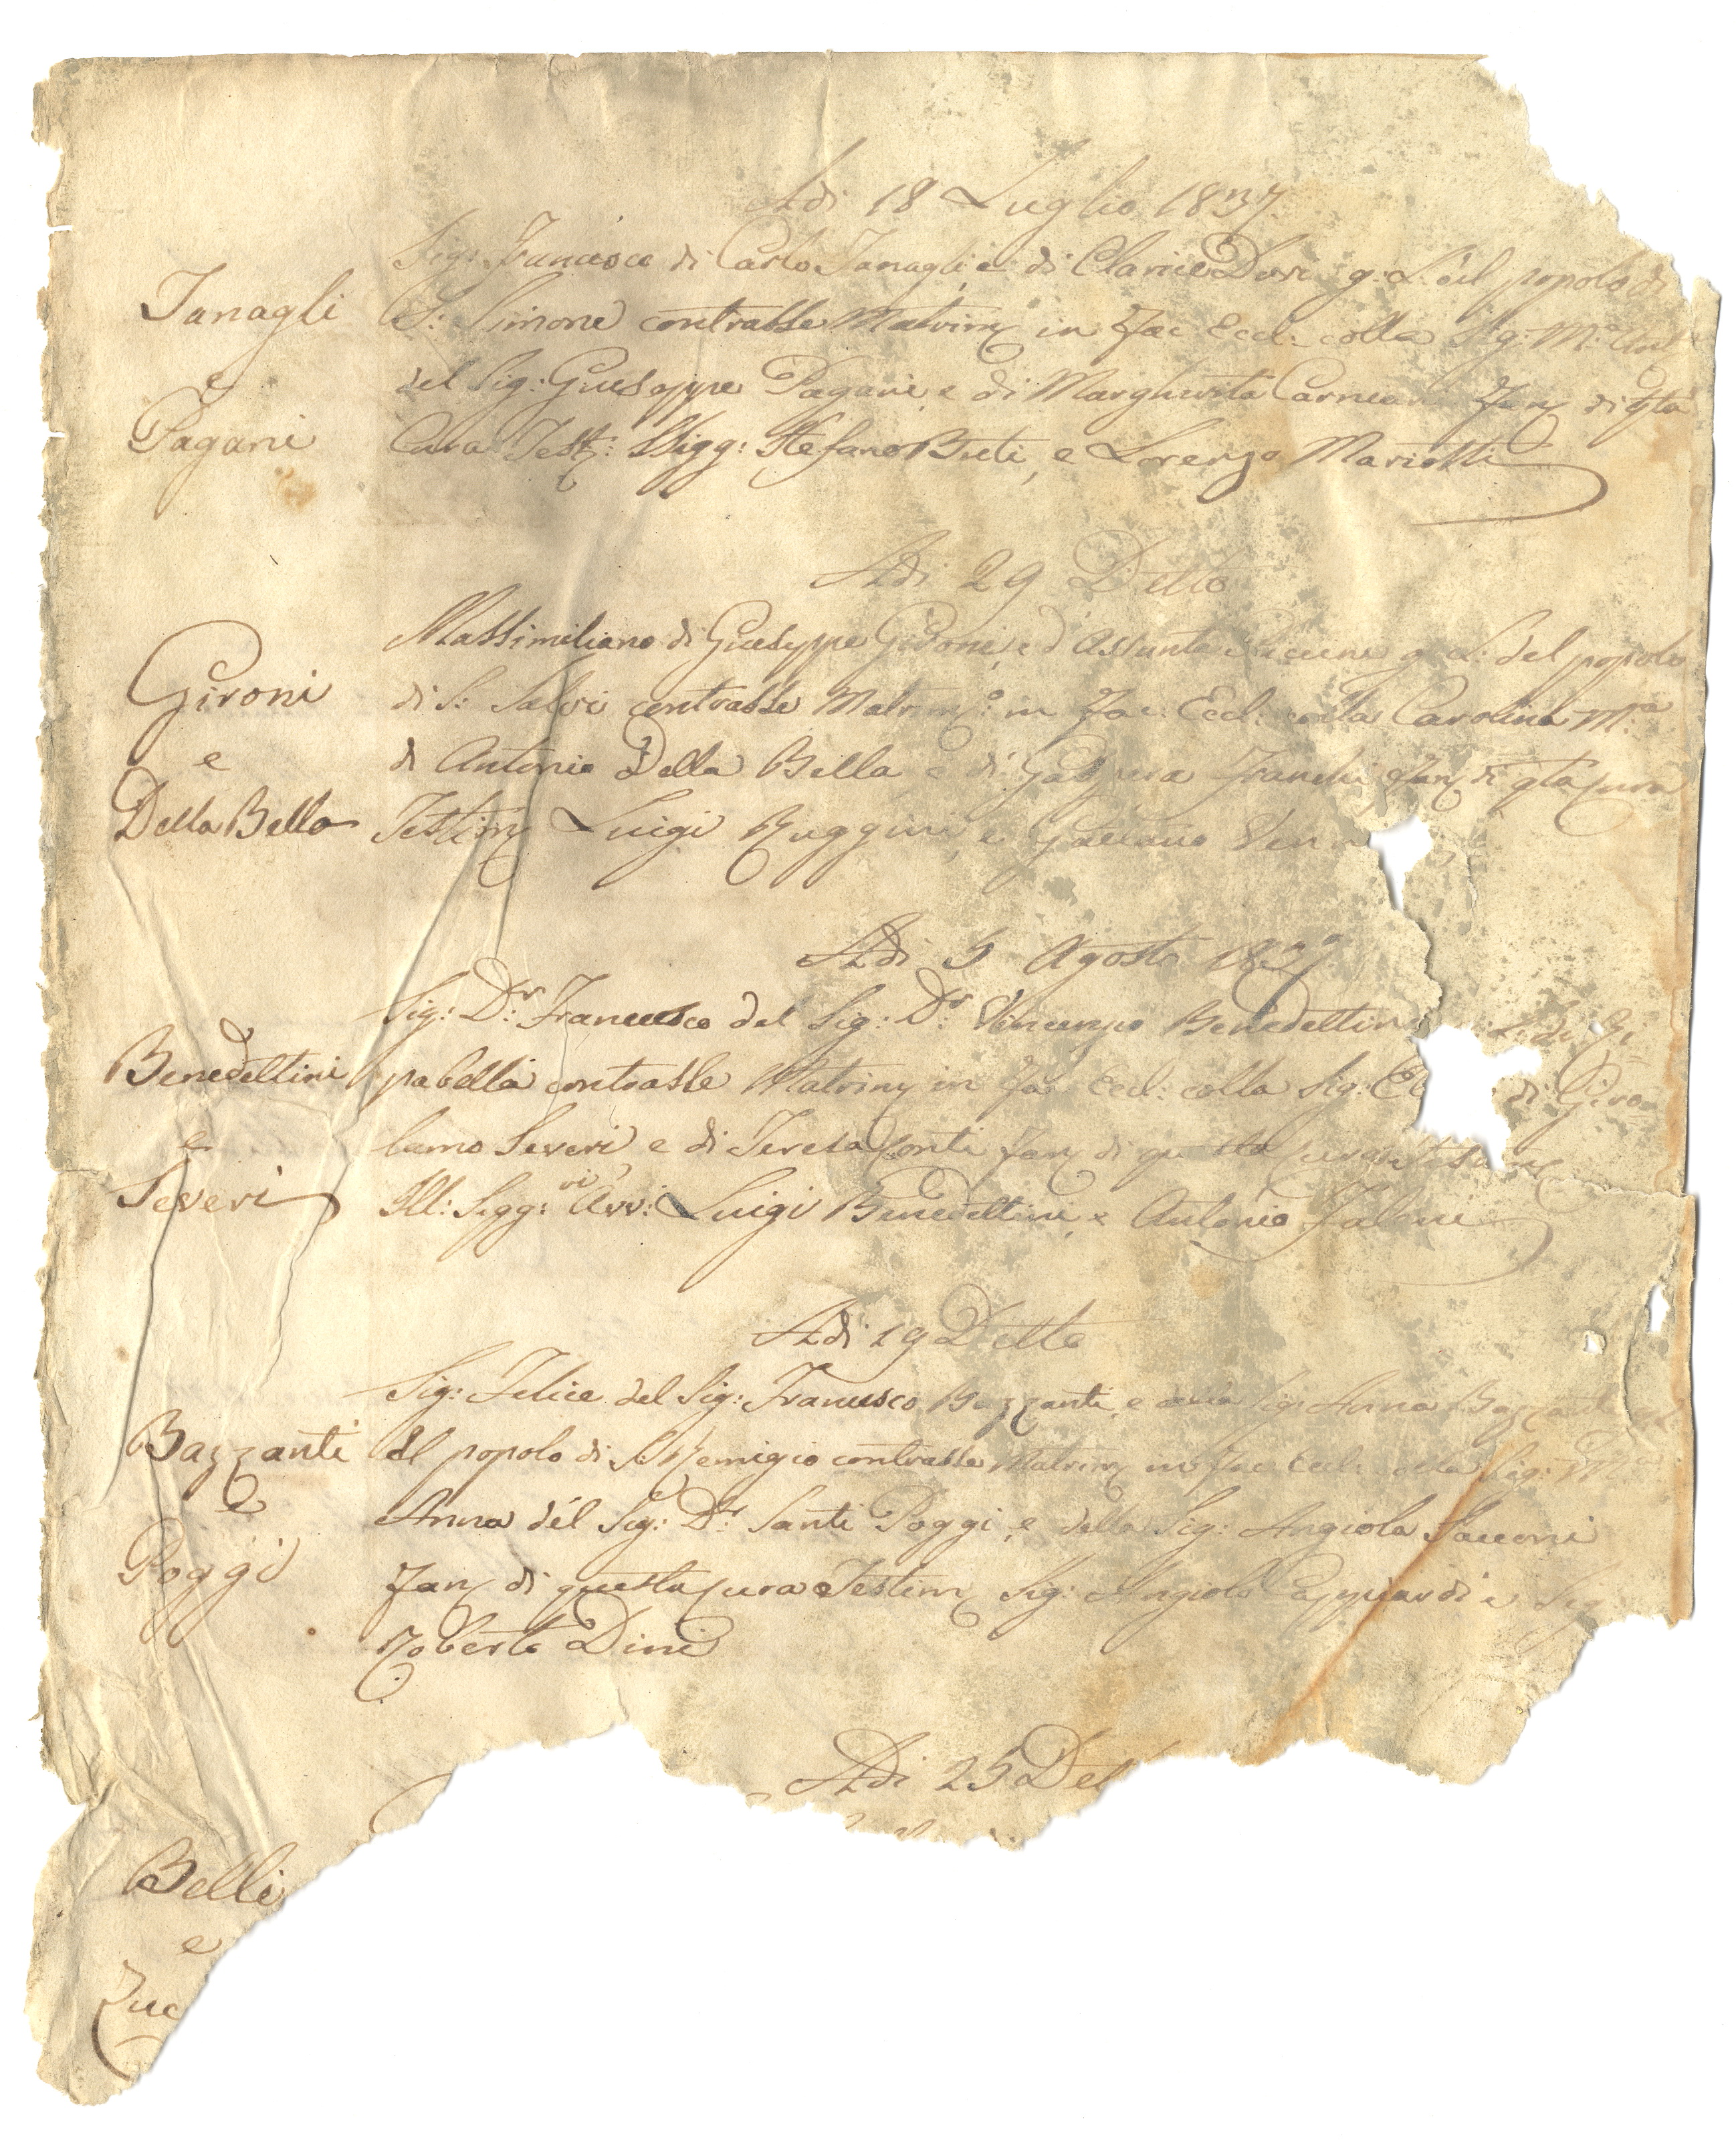 Adi 18 Luglio 1837
Sig: Francesco di Carlo Tanagli, e di Clarice g: L: del popolo di
Tanagli S: Simone contrasse Matrim in Fac: Eccl: colla Sig: M:a
e del Sig: Giuseppe Pagani, e di Margherita Fan di qta
Pagani Cura Test: SSigg: Stefano Buti, e Lorenzo Mariotti
Adi 29 Detto
Massimiliano di Giuseppe Gironi, e d'Assunta g: L: del popolo
Gironi di S: Salvi contrasse Matrim:o in Fac: Eccl: colla Carolina M:a
e di Antonio Della Bella, e di Gaspera Franchi Fan di qta Cura
Della Bella Testim Luigi Ruggini, e Gaetano
Adi 5 Agosto 1837
Sig: D:r Francesco del Sig: D:r Vincenzio Benedettini
Benedettini pabella contrasse Matrim in Fac: Eccl: colla Sig: di Giro
e lamo Severi e di Teresa Conti Fan di questa Cura Testim
Severi Ill: Sigg:ri Avv: Luigi Benedettini, e Antonio
Adi 19 Detto
Sig: Felice del Sig: Francesco Bazzanti, e della Sig: Anna
Bazzanti del popolo di S: Remigio contrasse Matrim in Fac: Eccl: colla Sig: M:a
e Anna del Sig: D:r Santi Poggi, e della Sig: Angiola
Poggi Fan di questa Cura Testim Sig: Angiolo e Sig
Roberto Dini
Adi 25 Det
Belli
e
Zuc